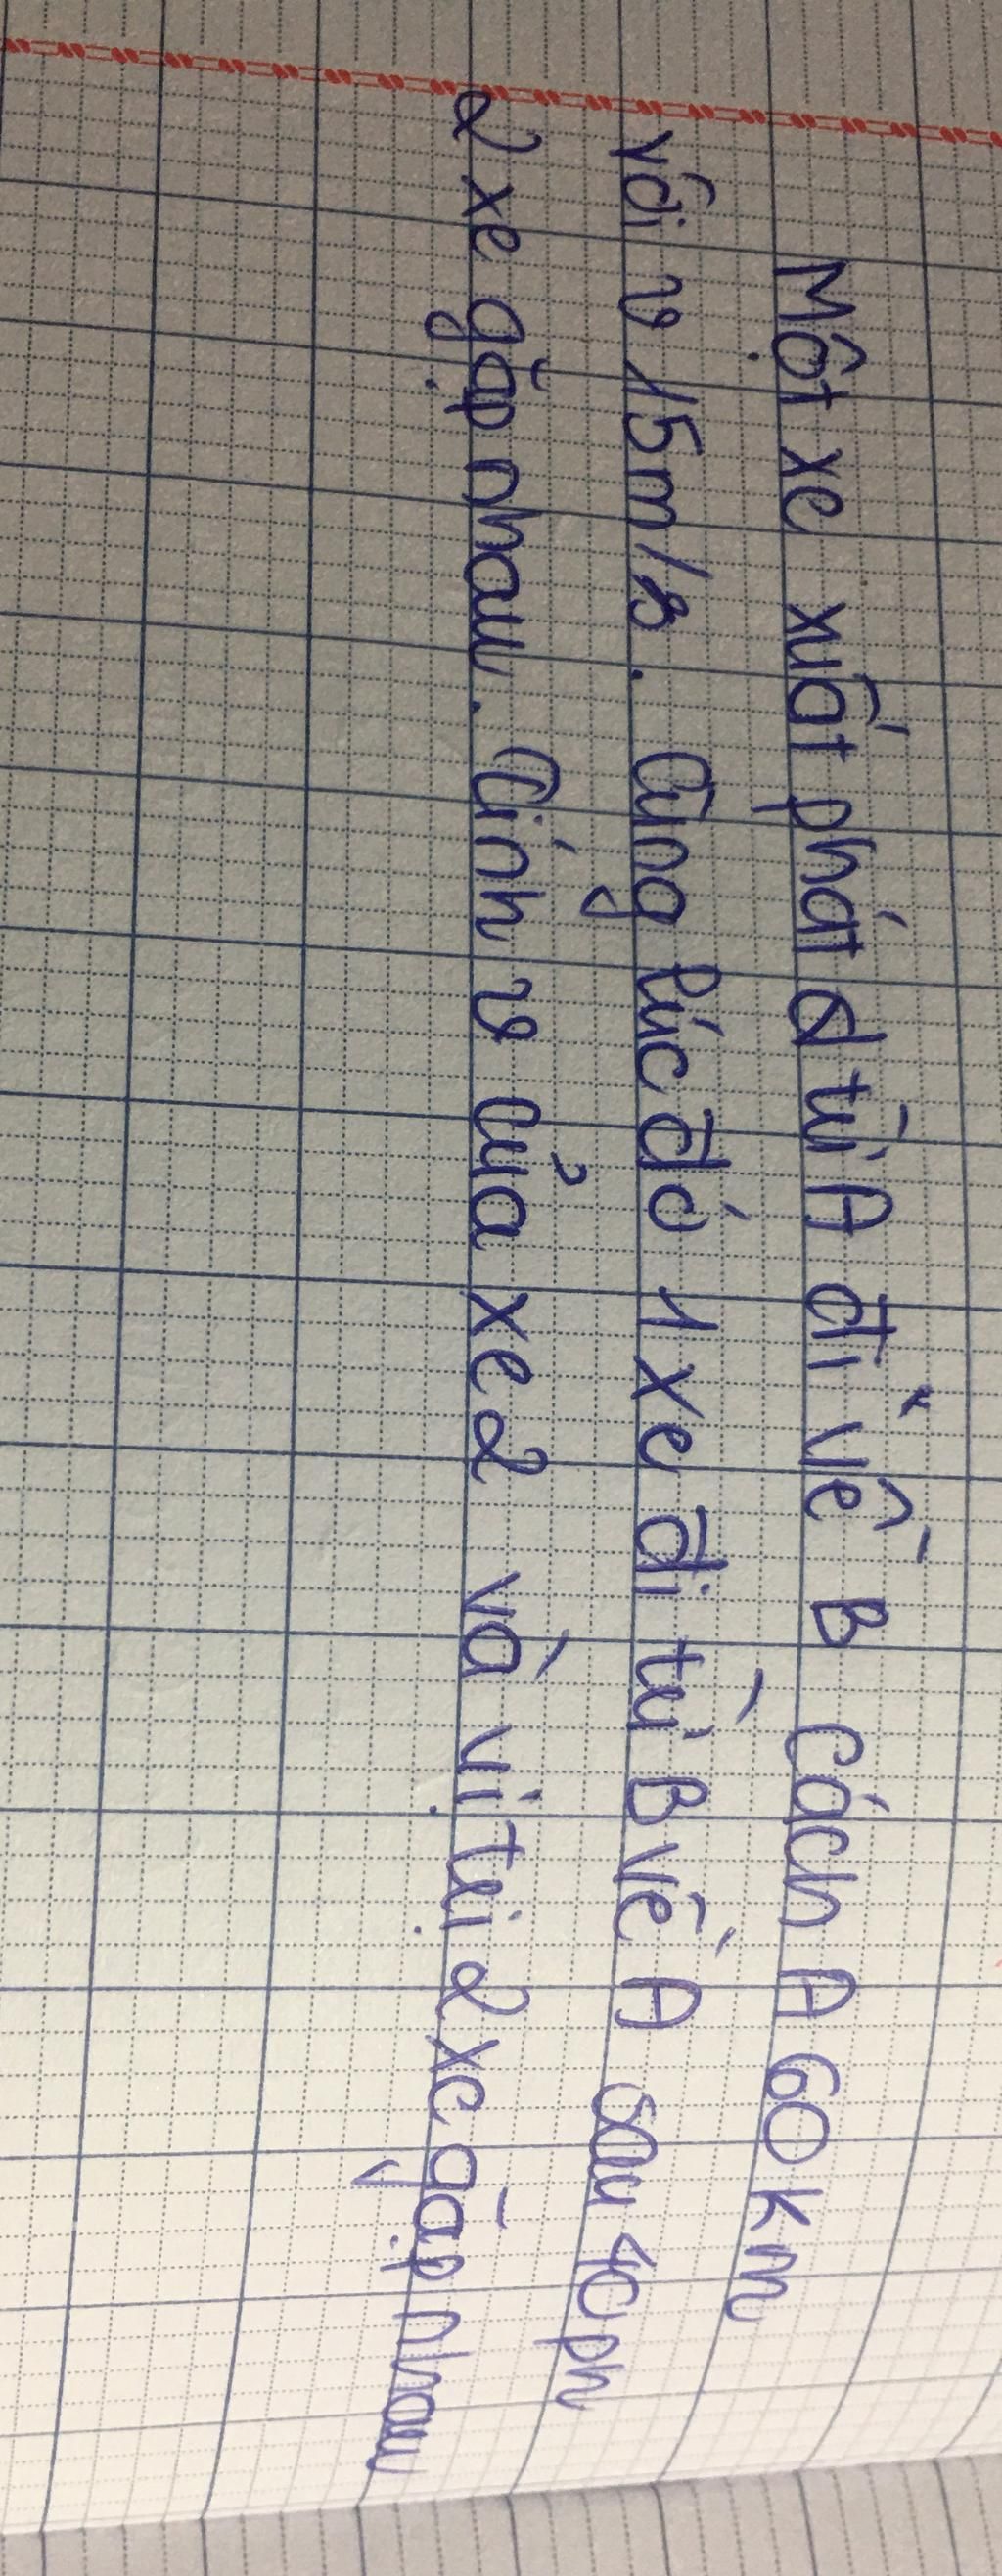 Một xe xuất phát từ A đi về B cách A 60 km
với v 15m/s. Cũng lúc đó 1 xe đi từ B về A sau 40 ph
2 xe gặp nhau. Tính v của xe 2 và vị trí 2 xe gặp nhau